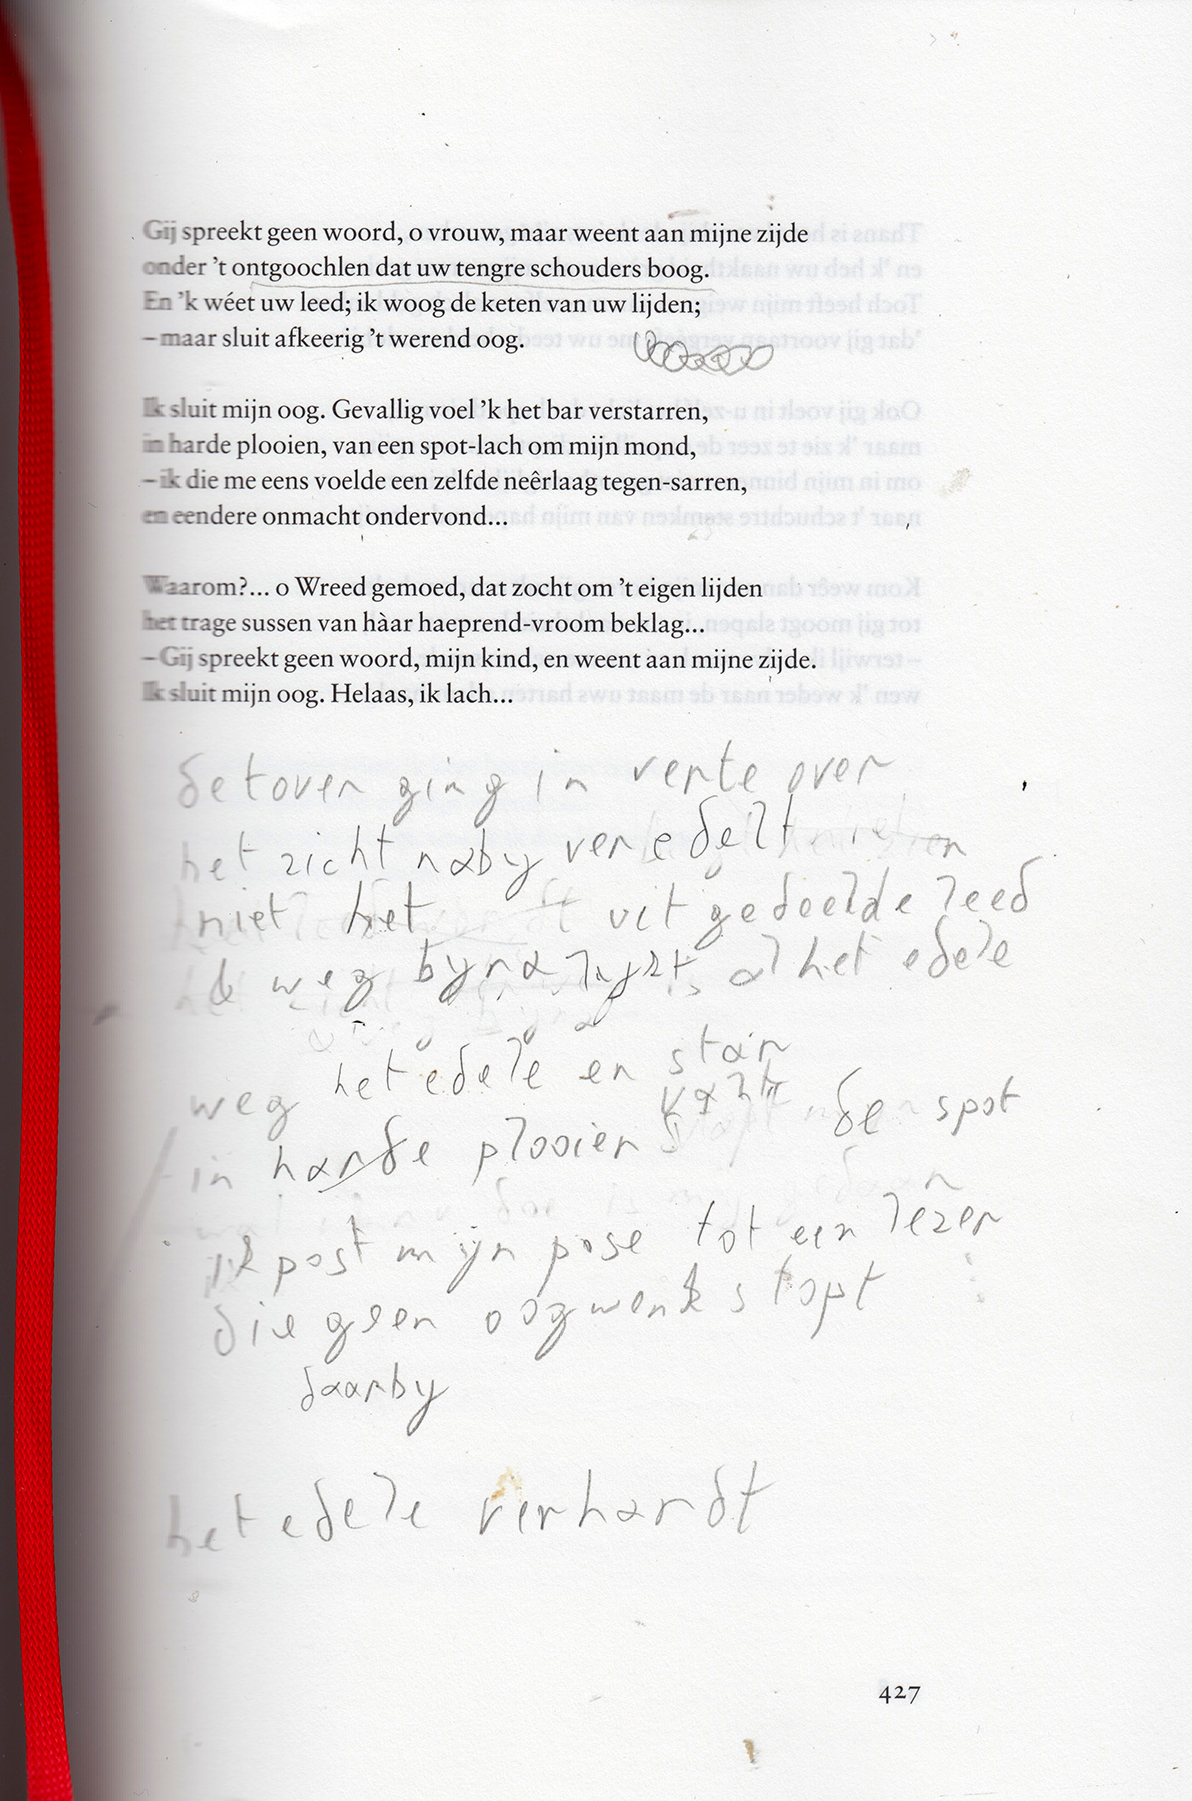 Gij spreekt geen woord, o vrouw, maar weent aan mijne zijde
onder ’t ontgoochlen dat uw tengre schouders boog.
En ’k wéet uw leed; ik woog de keten van uw lijden;
– maar sluit afkeerig ’t werend oog.
Ik sluit mijn oog. Gevallig voel ’k het bar verstarren,
in harde plooien, van een spot-lach om mijn mond,
– ik die me eens voelde een zelfde neêrlaag tegen-sarren,
en eendere onmacht ondervond...
Waarom?... o Wreed gemoed, dat zocht om ’t eigen lijden
het trage sussen van hàar haeprend-vroom beklag...
– Gij spreekt geen woord, mijn kind, en weent aan mijne zijde.
Ik sluit mijn oog. Helaas, ik lach...
de tover ging in verte over
het zicht naby veredelt
niet het uitgedeelde leed
de weg byna lykt al het edele
weg het edele en star
in harde plooien valt de spot
ik post mijn pose tot een lezer
die geen oogwenk stopt
daarby
het edele verhardt
427